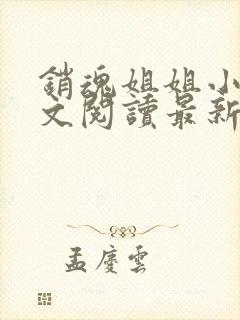 銷魂姐姐小
文閱讀最新
孟慶雲